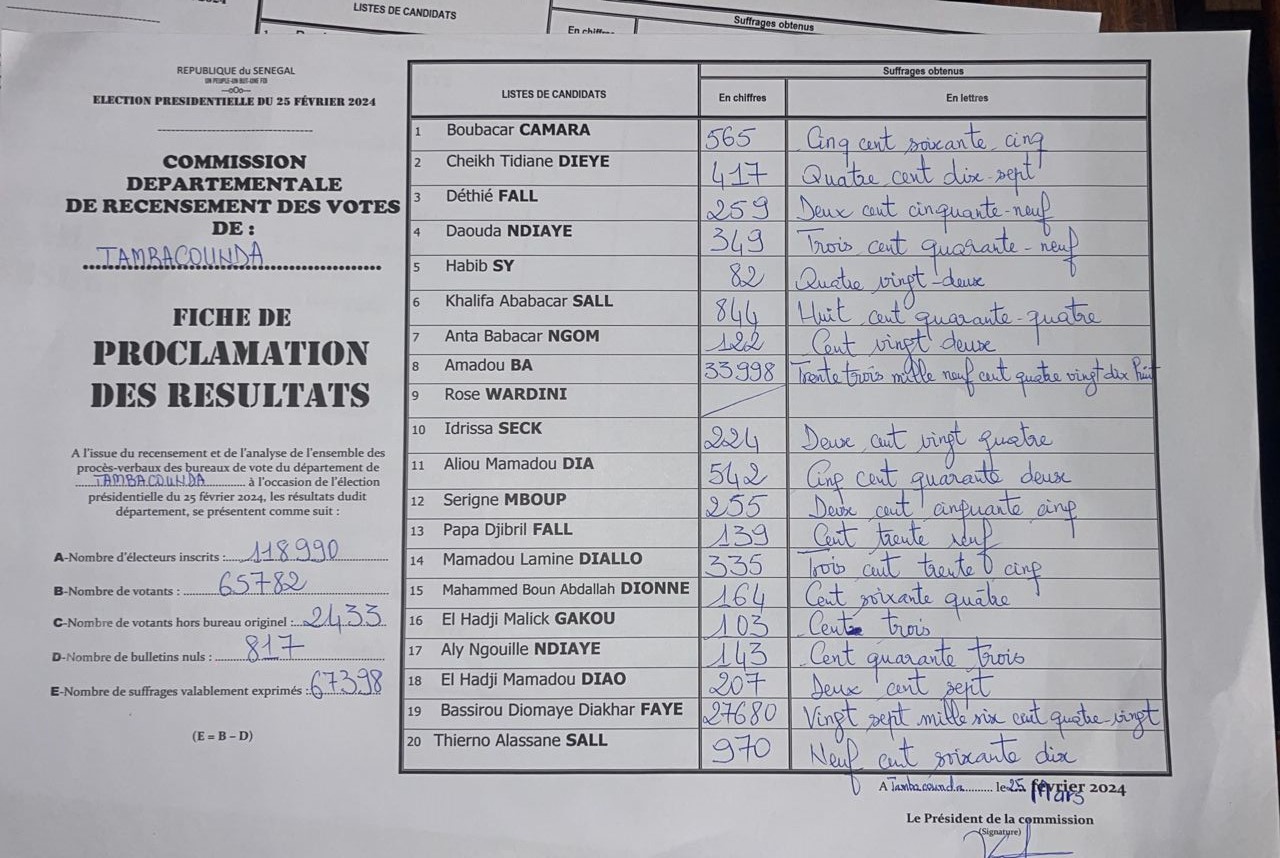 LISTES DE CANDIDATS
Suffrages obtenus
REPUBLIQUE du SENEGAL
UN PEUPLE-UN BUT-UNE FOI
—oOo—
ELECTION PRESIDENTIELLE DU 25 FÉVRIER 2024
COMMISSION
DEPARTEMENTALE
DE RECENSEMENT DES VOTES
DE :
TAMBACOUNDA
FICHE DE
PROCLAMATION
DES RESULTATS
A l'issue du recensement et de l'analyse de l'ensemble des
procès-verbaux des bureaux de vote du département de
TAMBACOUNDA à l'occasion de l'élection
présidentielle du 25 février 2024, les résultats dudit
département, se présentent comme suit :
A-Nombre d'électeurs inscrits : 118990
B-Nombre de votants : 65782
C-Nombre de votants hors bureau originel : 2433
D-Nombre de bulletins nuls : 817
E-Nombre de suffrages valablement exprimés : 67398
(E = B – D)
LISTES DE CANDIDATS
Suffrages obtenus
En chiffres
En lettres
1 Boubacar CAMARA 565 Cinq cent soixante cinq
2 Cheikh Tidiane DIEYE 417 Quatre cent dix-sept
3 Déthié FALL 259 Deux cent cinquante-neuf
4 Daouda NDIAYE 349 Trois cent quarante-neuf
5 Habib SY 82 Quatre vingt-deux
6 Khalifa Ababacar SALL 844 Huit cent quarante-quatre
7 Anta Babacar NGOM 122 Cent vingt deux
8 Amadou BA 33998 Trente trois mille neuf cent quatre vingt dix huit
9 Rose WARDINI
10 Idrissa SECK 224 Deux cent vingt quatre
11 Aliou Mamadou DIA 542 Cinq cent quarante deux
12 Serigne MBOUP 255 Deux cent cinquante cinq
13 Papa Djibril FALL 139 Cent trente neuf
14 Mamadou Lamine DIALLO 335 Trois cent trente cinq
15 Mahammed Boun Abdallah DIONNE 164 Cent soixante quatre
16 El Hadji Malick GAKOU 103 Cent trois
17 Aly Ngouille NDIAYE 143 Cent quarante trois
18 El Hadji Mamadou DIAO 207 Deux cent sept
19 Bassirou Diomaye Diakhar FAYE 27680 Vingt sept mille six cent quatre-vingt
20 Thierno Alassane SALL 970 Neuf cent soixante dix
A Tambacounda le 25 février Mars 2024
Le Président de la commission
(Signature)